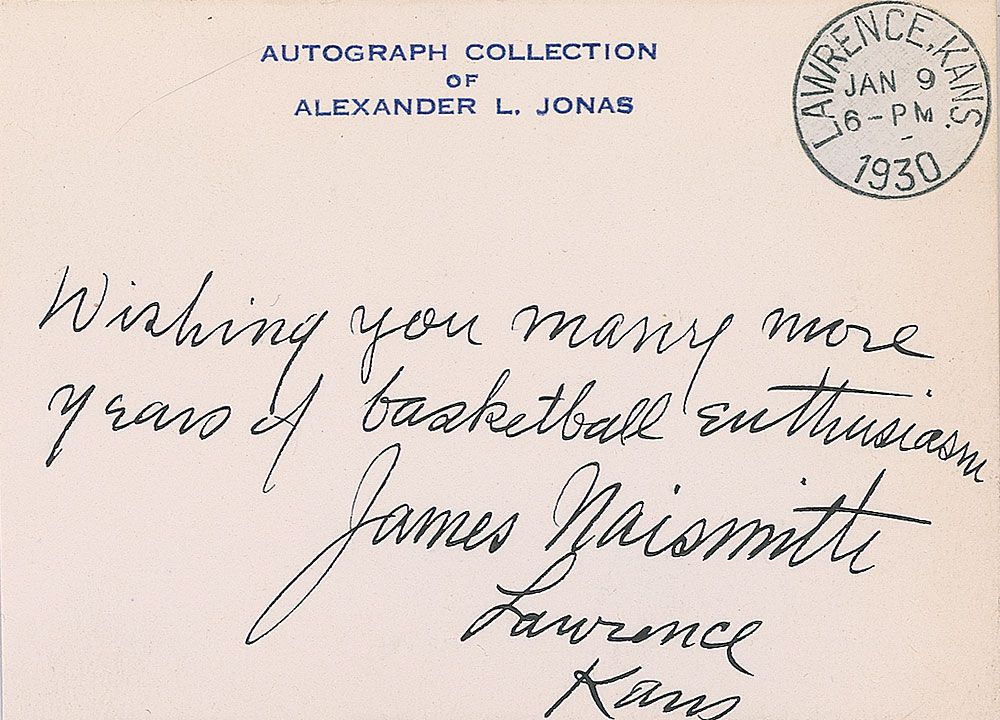 AUTOGRAPH COLLECTION
OF
ALEXANDER L. JONAS
LAWRENCE, KANS.
JAN 9
6-PM
1930
Wishing you many more
years of basketball enthusiasm
James Naismith
Lawrence
Kans